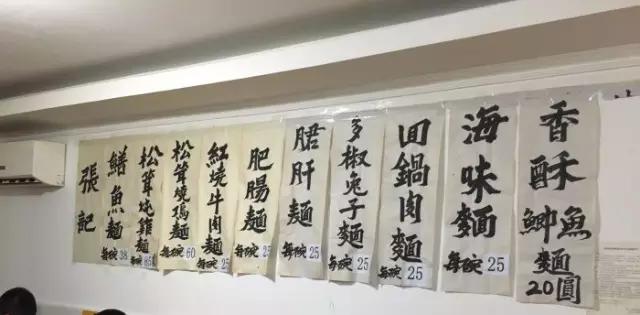 張記
鱔魚麵 每碗 38
松茸燒雞麵 每碗
松茸燒麵 每碗 60
紅燒牛肉麵 每碗 25
肥腸麵 每碗 25
肝麵 每碗 25
多椒兔子麵 每碗 25
回鍋肉麵 每碗 25
海味麵 每碗 25
香酥鯽魚麵 20圓